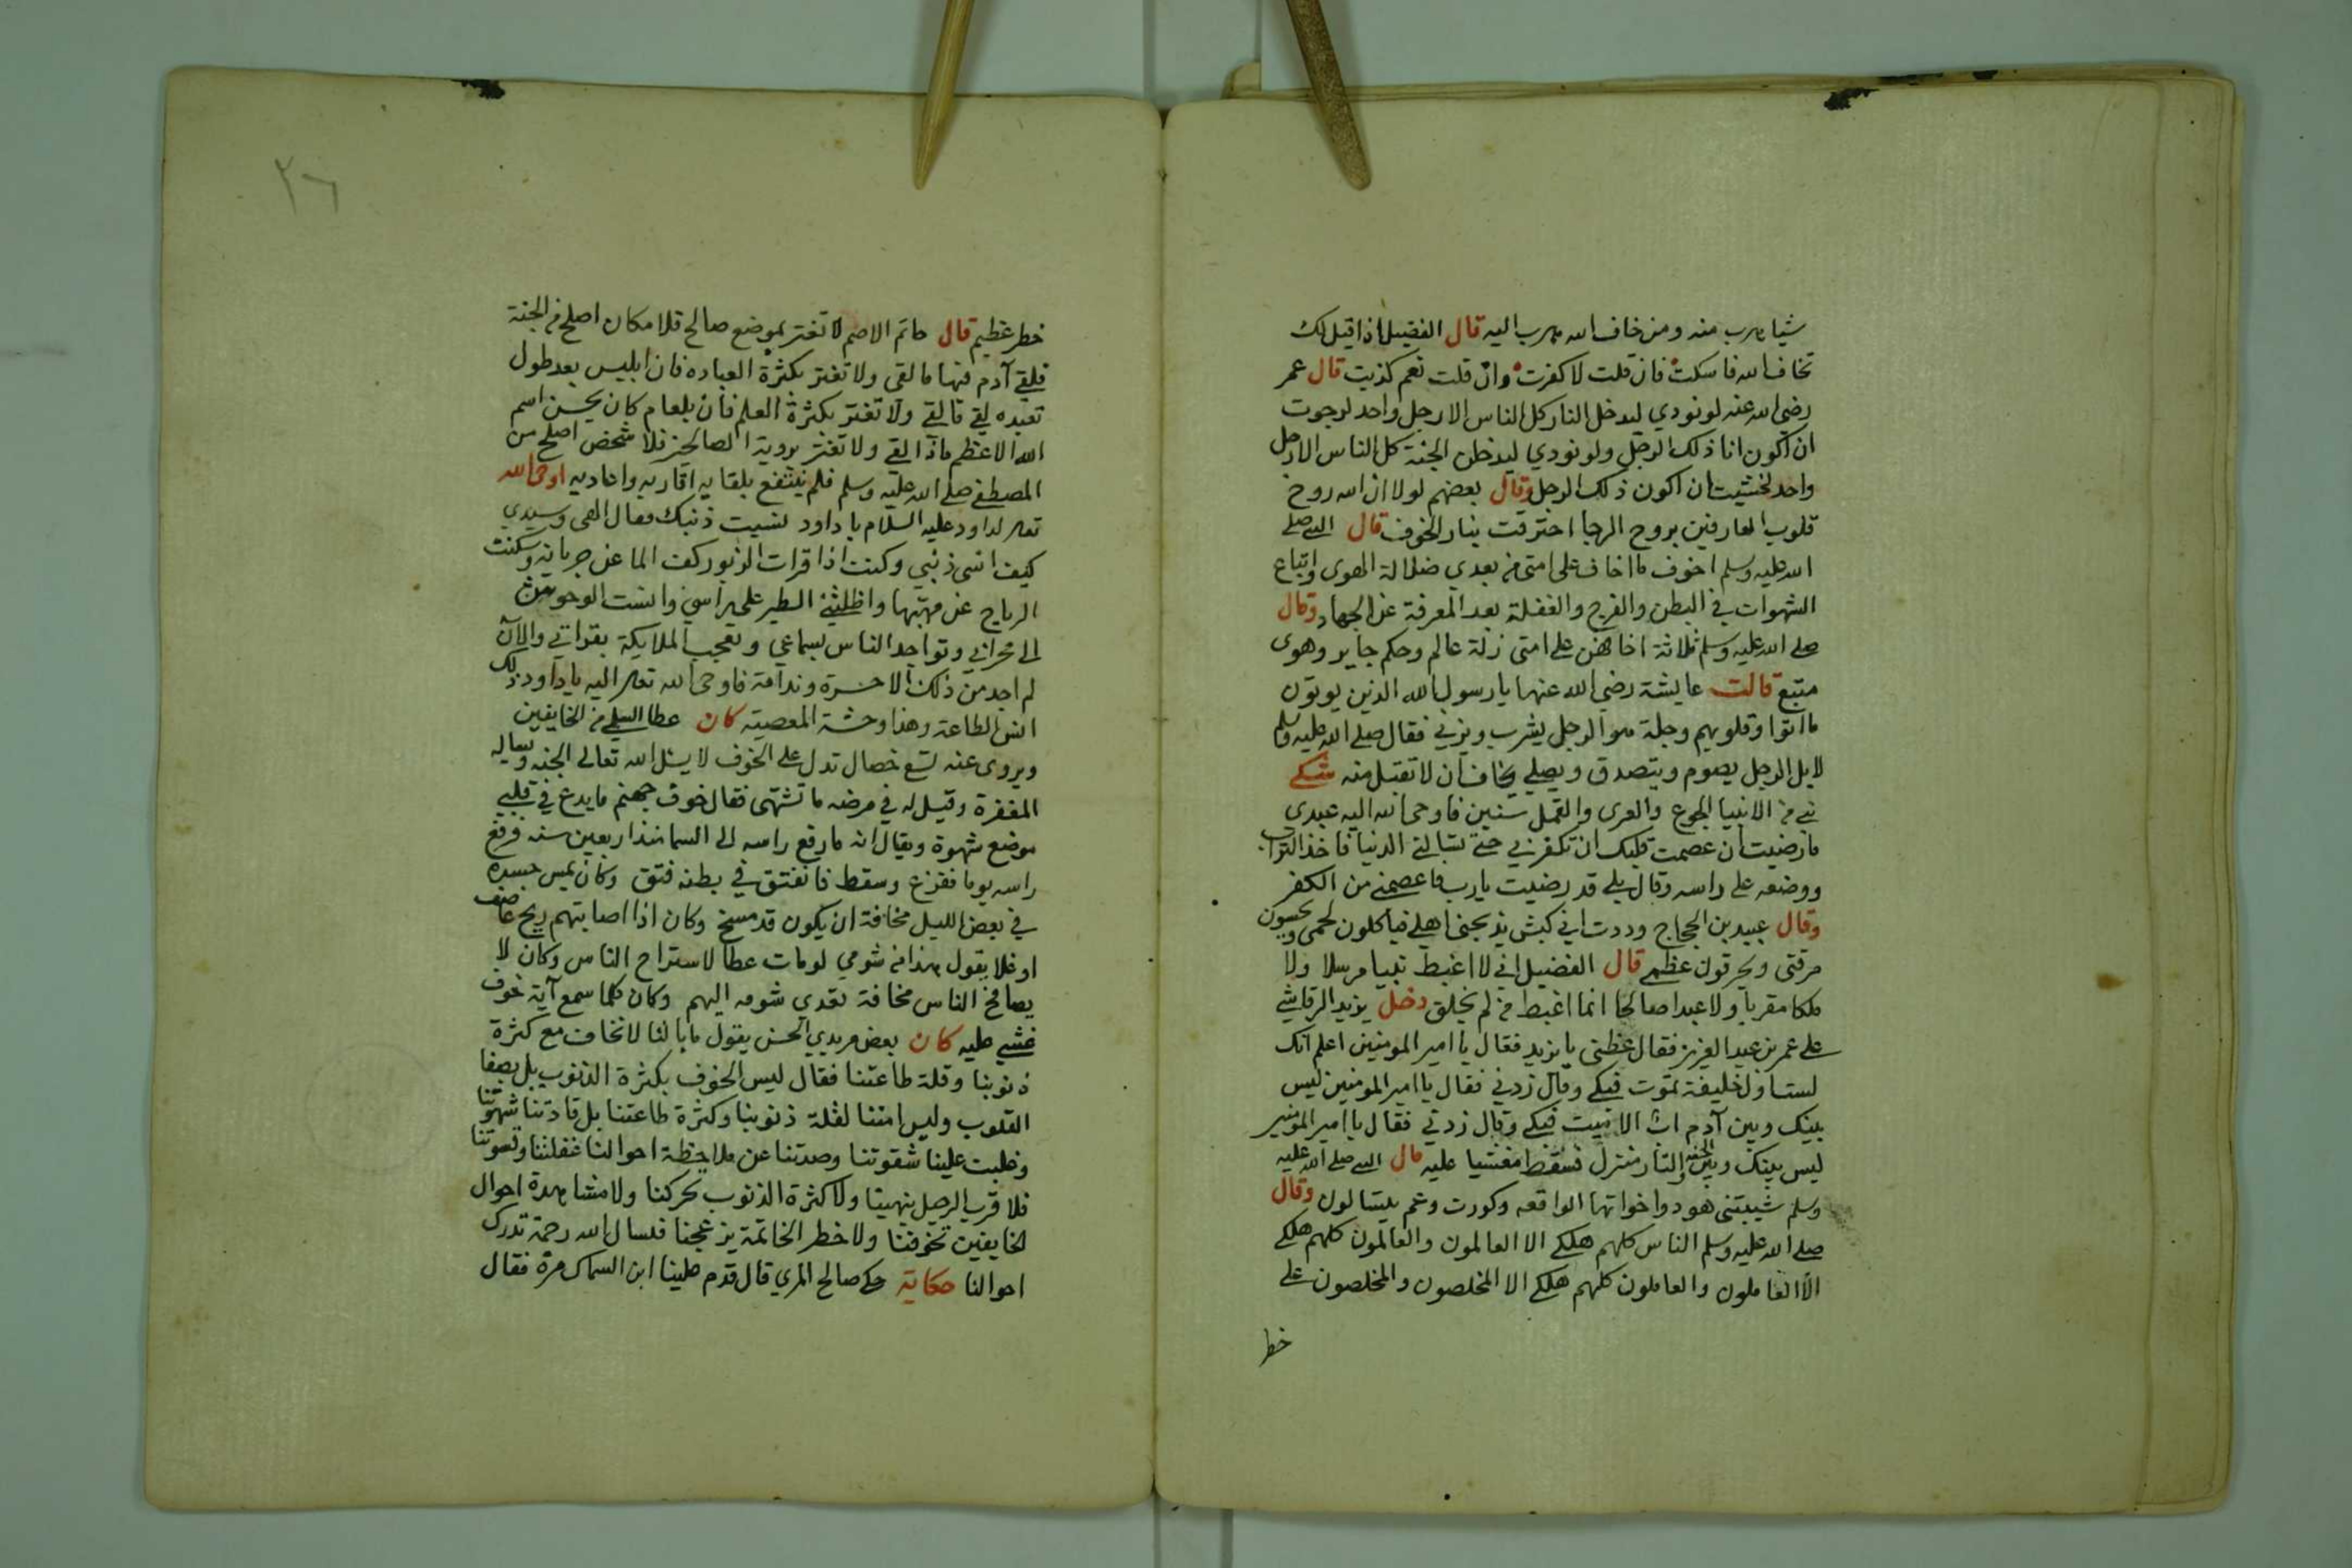 شيا يهرب منه ومن خاف الله يهرب اليه قال الفضيل اذا قيل لك
تخاف الله فاسكت فان قلت لا كفرت وان قلت نعم كذبت قال عمر
رضي الله عنه لو نودي ليدخل النار كل الناس الا رجل واحد لرجوت
ان اكون انا ذلك الرجل ولو نودي ليدخلن الجنة كل الناس الا رجل
واحد لخشيت ان اكون ذلك الرجل وقال بعضهم لولا ان الله روح
قلوب العارفين بروح الرجا احترقت بنار الخوف قال النبي صلى
الله عليه وسلم اخوف ما اخاف على امتي من بعدي ضلالة الهوى واتباع
الشهوات في البطن والفرج والغفلة بعد المعرفة عن الجهاد وقال
صلى الله عليه وسلم ثلاثة اخافهن على امتي زلة عالم وحكم جاير وهوى
متبع قالت عايشة رضي الله عنها يا رسول الله الذين يوتون
ما اتوا وقلوبهم وجلة هو الرجل يشرب ويزني فقال صلى الله عليه وسلم
لا بل الرجل يصوم ويتصدق ويصلي ويخاف ان لا تقبل منه شكى
نبي من الانبيا الجوع والعرى والقمل سنين فاوحى الله اليه عبدي
ما رضيت ان عصمت قلبك ان تكفر بي حتى تسالني الدنيا فاخذ التراب
ووضعه على راسه وقال بلى قد رضيت يا رب فاعصمني من الكفر
وقال عبيد بن الحجاج وددت اني كبش يذبحني اهلي فياكلون لحمي ويحسون
مرقتي ويحرقون عظمي قال الفضيل اني لا اغبط نبيا مرسلا ولا
ملكا مقربا ولا عبدا صالحا انما اغبط من لم يخلق دخل يزيد الرقاشي
على عمر بن عبد العزيز فقال عظني يا يزيد فقال يا امير المومنين اعلم انك
لست اول خليفة تموت فبكى وقال زدني فقال يا امير المومنين ليس
بينك وبين آدم اب الا ميت فبكى وقال زدني فقال يا امير المومنين
ليس بينك وبين الجنة والنار منزل فسقط مغشيا عليه قال النبي صلى الله عليه
وسلم شيبتني هود واخواتها الواقعه وكورت وعم يتسالون وقال
صلى الله عليه وسلم الناس كلهم هلكى الا العالمون والعالمون كلهم هلكى
الا العاملون والعاملون كلهم هلكى الا المخلصون والمخلصون على
خطر
٢٦
خطر عظيم قال حاتم الاصم لا تغتر بموضع صالح فلا مكان اصلح من الجنة
فلقى آدم فيها ما لقى ولا تغتر بكثرة العباده فان ابليس بعد طول
تعبده لقي ما لقي ولا تغتر بكثرة العلم فان بلعام كان يحسن اسم
الله الاعظم ماذا لقي ولا تغتر بروية الصالحين فلا شخص اصلح من
المصطفى صلى الله عليه وسلم فلم ينتفع بلقايه اقاربه واعاديه اوحى الله
تعالى لداود عليه السلام يا داود نسيت ذنبك فقال الهي وسيدي
كيف انسى ذنبي وكنت اذا قرات الزبور كف الما عن جريانه وسكنت
الرياح عن مهبها واظلني الطير على راسي وانست الوحوش
الى محرابي وتواجد الناس بسماعي وتعجب الملايكة بقراتي والآن
لم اجد من ذلك الا حسرة وندامة فاوحى الله تعالى اليه يا داود ذلك
انس الطاعة وهذا وحشة المعصيته كان عطا السلمي من الخايفين
ويروى عنه تسع خصال تدل على الخوف لا يسئل الله تعالى الجنه وساله
المغفرة وقيل له في مرضه ما تشتهى فقال خوف جهنم ما يدع في قلبي
موضع شهوة ويقال انه ما رفع راسه الى السما منذ اربعين سنه فرفع
راسه يوما ففزع وسقط فانفتق في بطنه فتق وكان يمس جسده
في بعض الليل مخافة ان يكون قد مسخ وكان اذا اصابتهم ريح عاصف
او غلا يقول هذا من شومي لو مات عطا لاستراح الناس وكان لا
يصافح الناس مخافة تعدي شومه اليهم وكان كلما سمع آية خوف
غشي عليه كان بعض مريدي الحسن يقول ما بالنا لا نخاف مع كثرة
ذنوبنا وقلة طاعتنا فقال ليس الخوف بكثرة الذنوب بل بصفا
القلوب وليس امننا لقلة ذنوبنا وكثرة طاعتنا بل قادتنا شهوتنا
وغلبت علينا شقوتنا وصدتنا عن ملاحظة احوالنا غفلتنا وقسوتنا
فلا قرب الرحيل ينهينا ولا كثرة الذنوب تحركنا ولا مشاهدة احوال
الخايفين تخوفنا ولا خطر الخاتمة يزعجنا فنسال الله رحمة تدرك
احوالنا حكاية حكى صالح المري قال قدم علينا ابن السماك مرة فقال